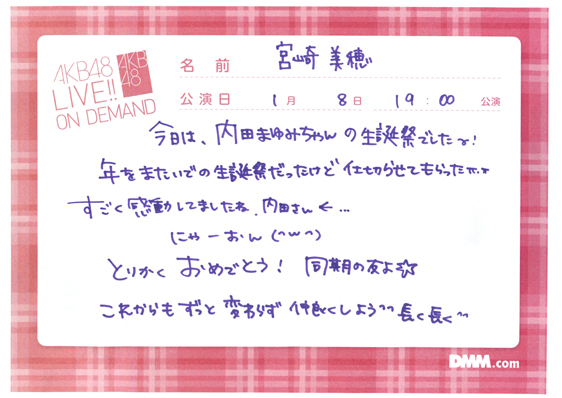 AKB48
LIVE!!
ON DEMAND
AKB
48
名前 宮崎美穂
公演日 1月 8日 19:00 公演
今日は、内田まゆみちゃんの生誕祭でした〜!
年をまたいでの生誕祭だったけど 仕切らせてもらった
すごく感動してましたね、内田さん ← ...
にゃーおん (^w^)
とりかく おめでとう! 同期の友よ☆
これからも ずっと 変わらず 仲良くしよう^^ 長く長く^^
DMM.com